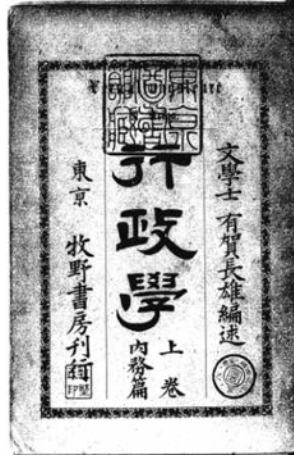 文學士 有賀長雄編述
行政學
上卷
内務篇
東京 牧野書房刊行